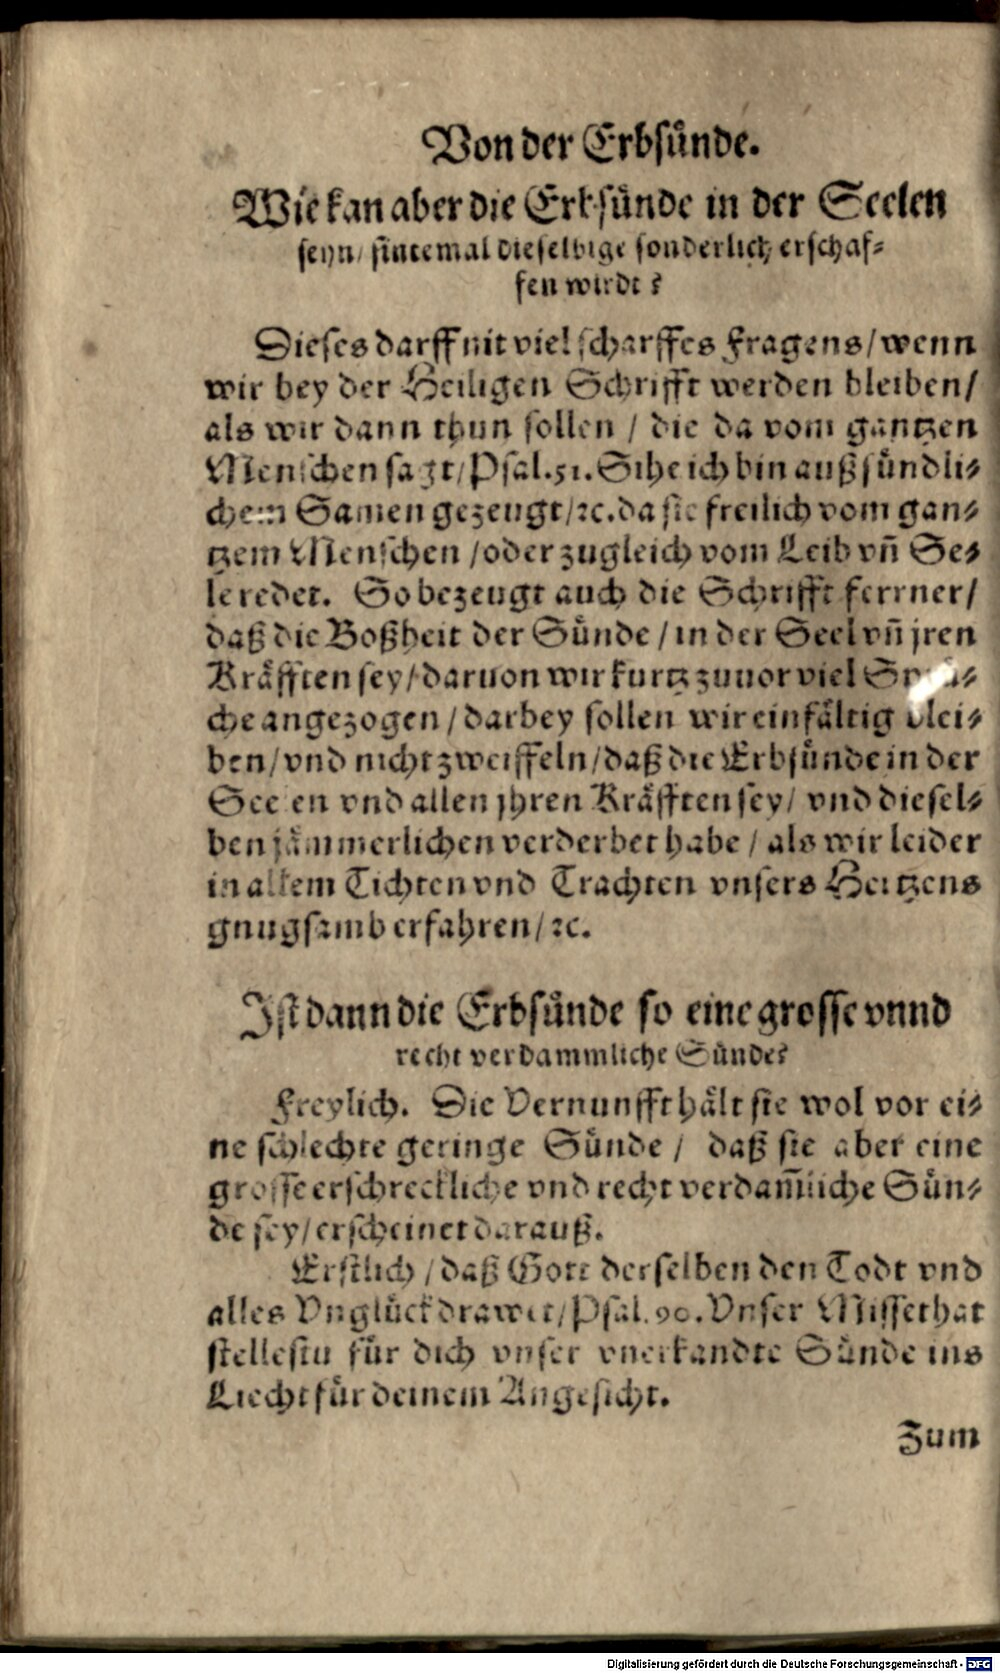 Von der Erbsünde.
Wie kan aber die Erbsünde in der Seelen
seyn/ sintemal dieselbige sonderlich erschaf-
fen wirdt?
Dieses darff nit viel scharffes Fragens/ wenn
wir bey der Heiligen Schrifft werden bleiben/
als wir dann thun sollen / die da vom gantzen
Menschen sagt/ Psal. 51. Sihe ich bin auß sündli-
chem Samen gezeugt/ ꝛc. da sie freilich vom gan-
tzem Menschen / oder zugleich vom Leib vñ See-
le redet. So bezeugt auch die Schrifft ferrner/
daß die Boßheit der Sünde / in der Seel vñ jren
Kräfften sey/ daruon wir kurtz zuuor viel Sprü-
che angezogen / darbey sollen wir einfältig blei-
ben/ vnd nicht zweiffeln/ daß die Erbsünde in der
Seelen vnd allen jhren Kräfften sey/ vnd diesel-
ben jämmerlichen verderbet habe / als wir leider
in allem Tichten vnd Trachten vnsers Hertzens
gnugsamb erfahren/ ꝛc.
Ist dann die Erbsünde so eine grosse vnnd
recht verdammliche Sünde?
Freylich. Die Vernunfft hält sie wol vor ei-
ne schlechte geringe Sünde / daß sie aber eine
grosse erschreckliche vnd recht verdam̃liche Sün-
de sey/ erscheinet darauß.
Erstlich / daß Gott derselben den Todt vnd
alles Vnglück drawet/ Psal. 90. Vnser Missethat
stellestu für dich vnser vnerkandte Sünde ins
Liecht für deinem Angesicht.
Zum
Digitalisierung gefördert durch die Deutsche Forschungsgemeinschaft - DFG